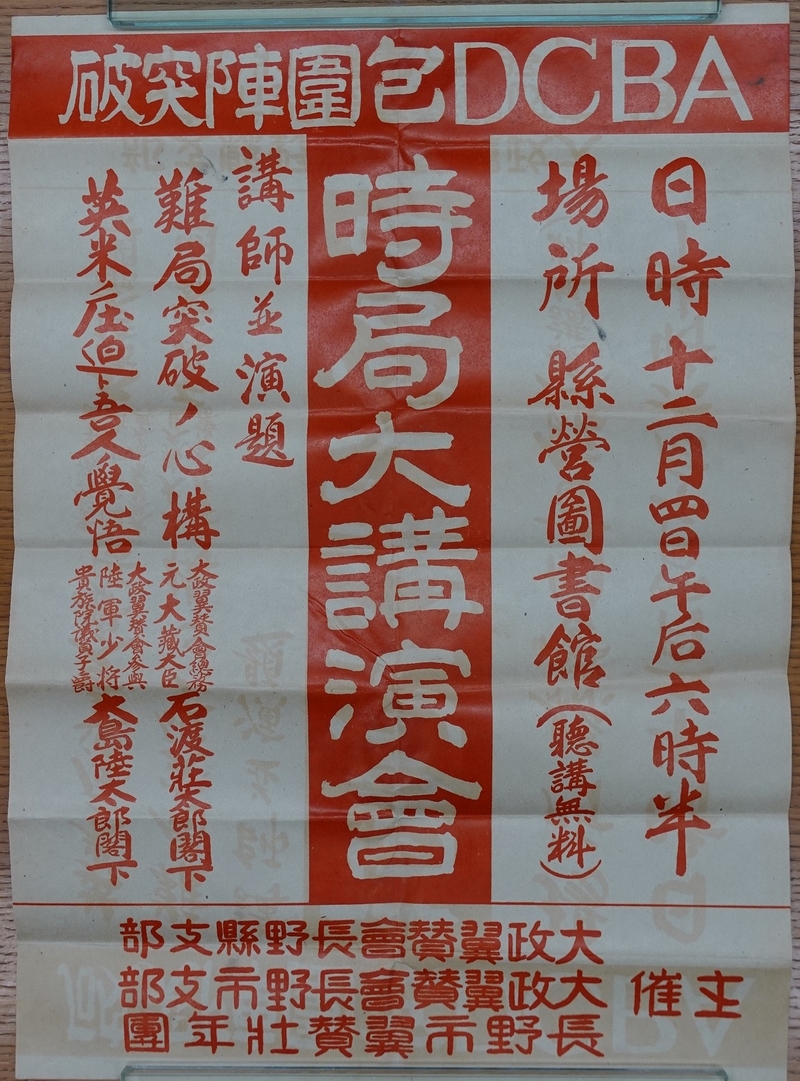 ABCD包圍陣突破
日時 十二月四日午后六時半
場所 縣營圖書館(聽講無料)
時局大講演會
講師並演題
難局突破ノ心構
大政翼賛會總務
元大藏大臣
石渡莊太郎閣下
英米圧迫ト吾人ノ覺悟
大政翼賛會参與
陸軍少将
貴族院議員子爵
大島陸太郎閣下
主催
大政翼賛會長野縣支部
大政翼賛會長野市支部
長野市翼賛壯年團